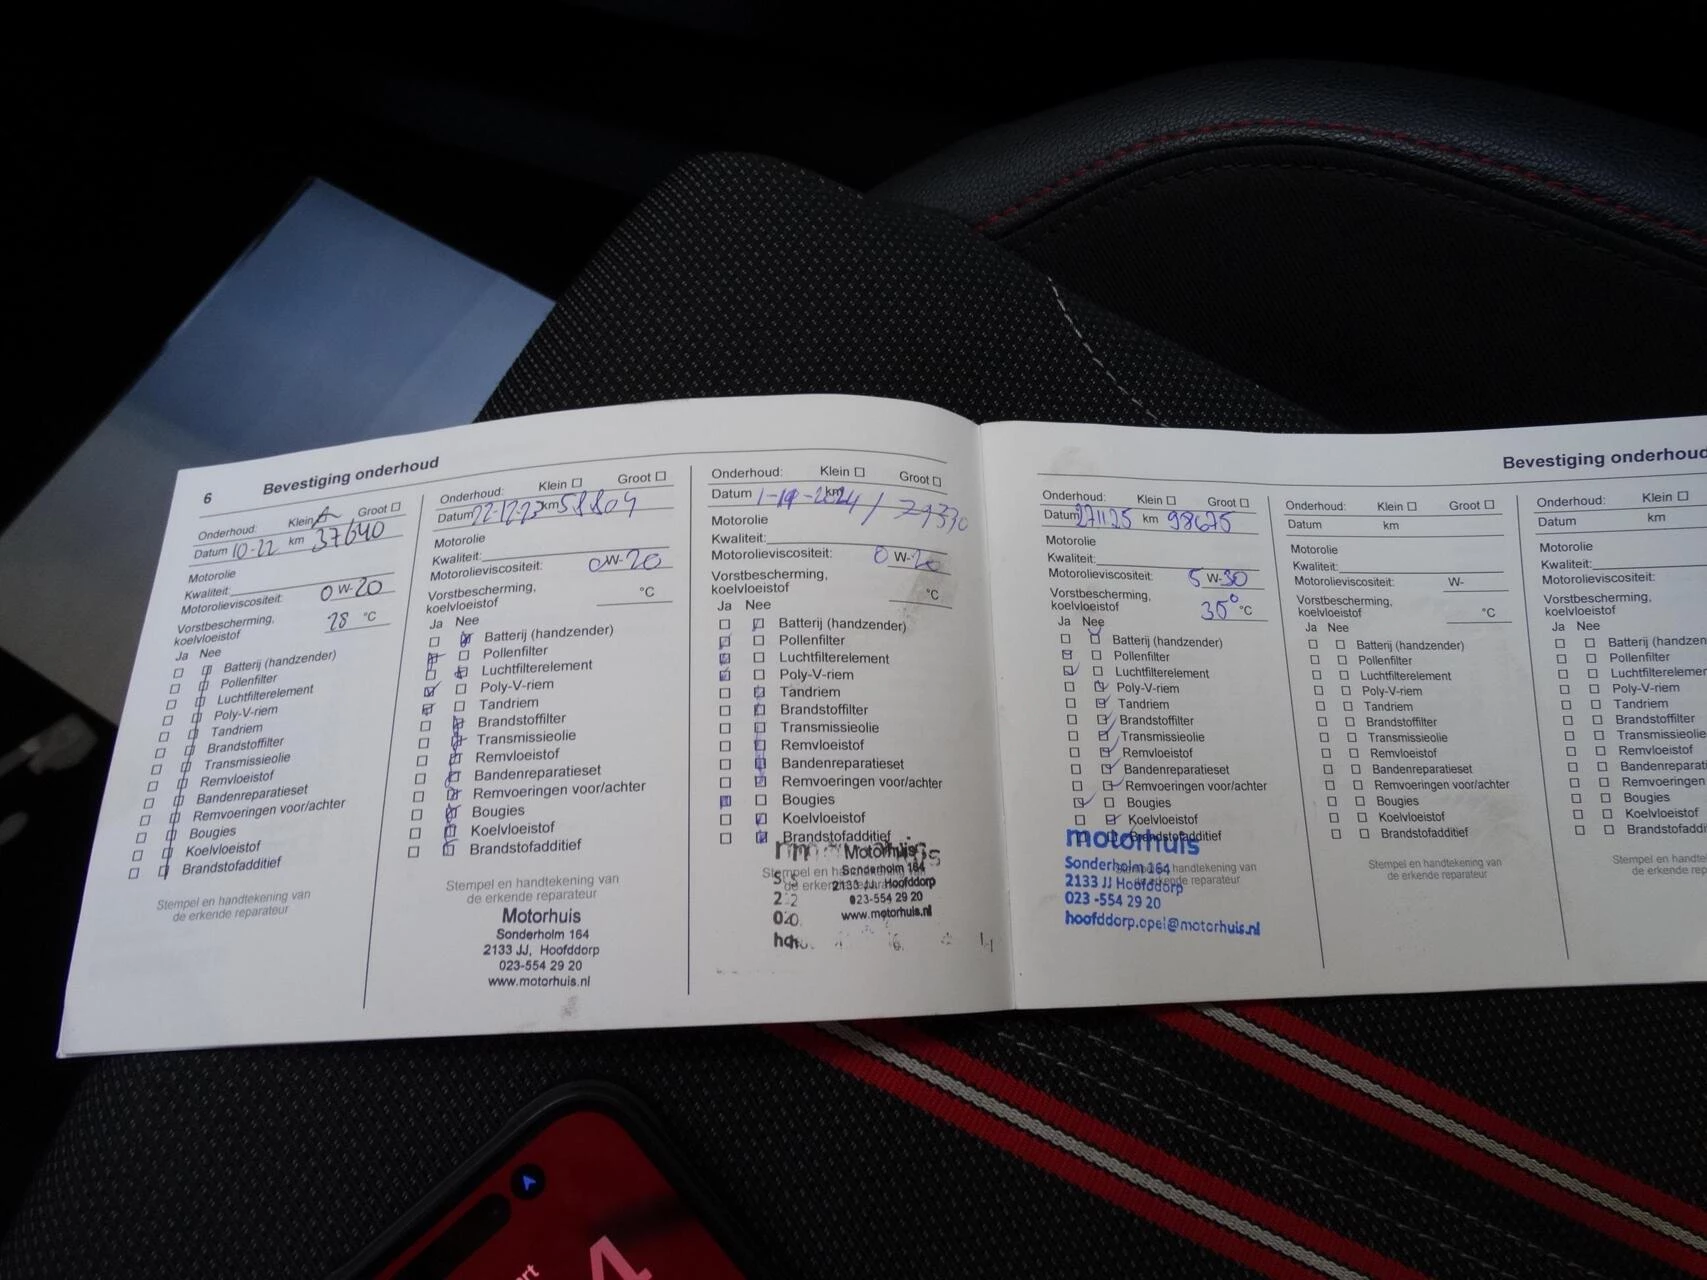 6
Bevestiging onderhoud
Onderhoud: Klein Groot
Datum 10-22 km 37640
Motorolie
Kwaliteit:
Motorolieviscositeit: 0 W-20
Vorstbescherming,
koelvloeistof 28 °C
Ja Nee
Batterij (handzender)
Pollenfilter
Luchtfilterelement
Poly-V-riem
Tandriem
Brandstoffilter
Transmissieolie
Remvloeistof
Bandenreparatieset
Remvoeringen voor/achter
Bougies
Koelvloeistof
Brandstofadditief
Stempel en handtekening van
de erkende reparateur
Onderhoud: Klein Groot
Datum 22-12-23 km 58809
Motorolie
Kwaliteit:
Motorolieviscositeit: 0 W-20
Vorstbescherming,
koelvloeistof °C
Ja Nee
Batterij (handzender)
Pollenfilter
Luchtfilterelement
Poly-V-riem
Tandriem
Brandstoffilter
Transmissieolie
Remvloeistof
Bandenreparatieset
Remvoeringen voor/achter
Bougies
Koelvloeistof
Brandstofadditief
Stempel en handtekening van
de erkende reparateur
Motorhuis
Sonderholm 164
2133 JJ, Hoofddorp
023-554 29 20
www.motorhuis.nl
Onderhoud: Klein Groot
Datum km
Motorolie
Kwaliteit:
Motorolieviscositeit: 0 W-20
Vorstbescherming,
koelvloeistof °C
Ja Nee
Batterij (handzender)
Pollenfilter
Luchtfilterelement
Poly-V-riem
Tandriem
Brandstoffilter
Transmissieolie
Remvloeistof
Bandenreparatieset
Remvoeringen voor/achter
Bougies
Koelvloeistof
Brandstofadditief
Motorhuis
Sonderholm 164
2133 JJ, Hoofddorp
023-554 29 20
www.motorhuis.nl
Bevestiging onderhoud
Onderhoud: Klein Groot
Datum 271125 km 98675
Motorolie
Kwaliteit:
Motorolieviscositeit: 5 W-30
Vorstbescherming,
koelvloeistof 35° °C
Ja Nee
Batterij (handzender)
Pollenfilter
Luchtfilterelement
Poly-V-riem
Tandriem
Brandstoffilter
Transmissieolie
Remvloeistof
Bandenreparatieset
Remvoeringen voor/achter
Bougies
Koelvloeistof
Brandstofadditief
Stempel en handtekening van
de erkende reparateur
motorhuis
Sonderholm 164
2133 JJ Hoofddorp
023 -554 29 20
hoofddorp.opel@motorhuis.nl
Onderhoud: Klein Groot
Datum km
Motorolie
Kwaliteit:
Motorolieviscositeit: W-
Vorstbescherming,
koelvloeistof °C
Ja Nee
Batterij (handzender)
Pollenfilter
Luchtfilterelement
Poly-V-riem
Tandriem
Brandstoffilter
Transmissieolie
Remvloeistof
Bandenreparatieset
Remvoeringen voor/achter
Bougies
Koelvloeistof
Brandstofadditief
Stempel en handtekening van
de erkende reparateur
Onderhoud: Klein
Datum km
Motorolie
Kwaliteit:
Motorolieviscositeit:
Vorstbescherming,
koelvloeistof
Ja Nee
Batterij (handzen
Pollenfilter
Luchtfilterelemen
Poly-V-riem
Tandriem
Brandstoffilter
Transmissieolie
Remvloeistof
Bandenreparati
Remvoeringen
Bougies
Koelvloeistof
Brandstofadditi
Stempel en hand
de erkende
4